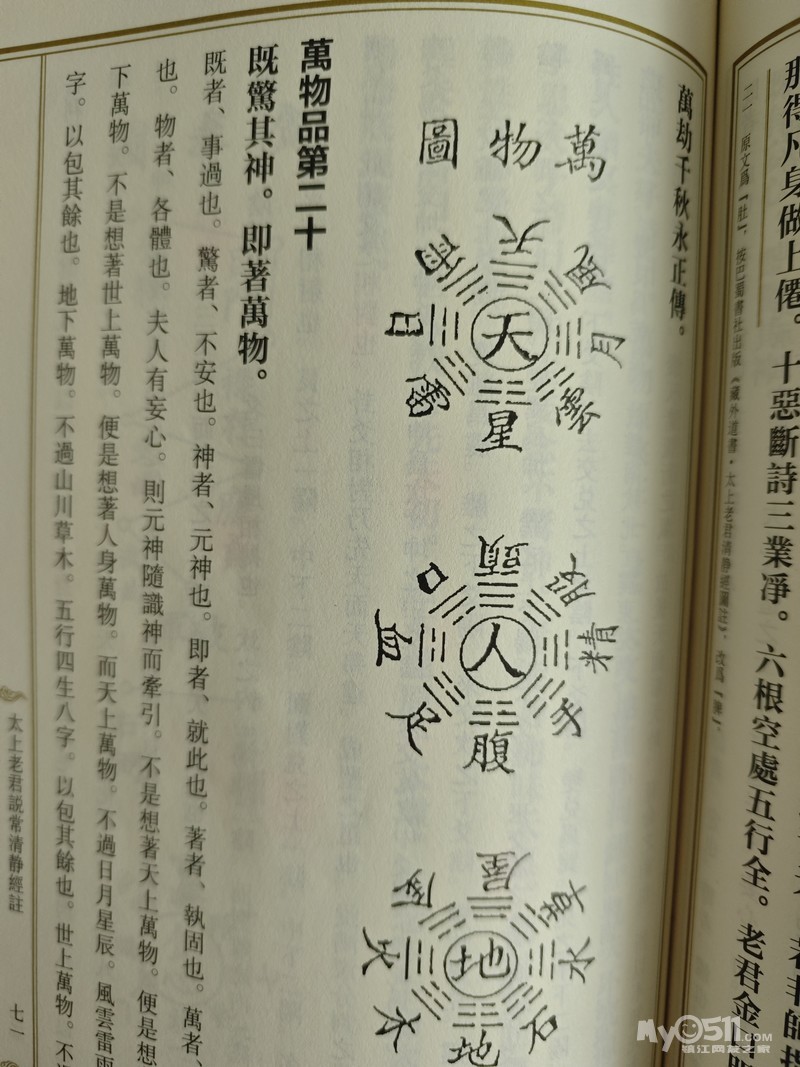 那得凡身做上僊。十惡斷時三業凈。六根空處五行全。
萬劫千秋永正傳。
萬物圖
天
風
月
雲
星
雷
日
雨
天
人
頭
肝
精
腹
足
血
口
地
屋
草
水
石
地
木
火
萬物品第二十
既驚其神。即著萬物。
既者、事過也。驚者、不安也。神者、元神也。即者、就此也。著者、執固也。萬者、
也。物者、各體也。夫人有妄心。則元神隨識神而牽引。不是想著天上萬物。便是想
下萬物。不是想著世上萬物。便是想著人身萬物。而天上萬物。不過日月星辰。風雲雷雨
字。以包其餘也。地下萬物。不過山川草木。五行四生八字。以包其餘也。世上萬物。不
太上老君說常清静經註
七一
My0511.com
镇江网友之家